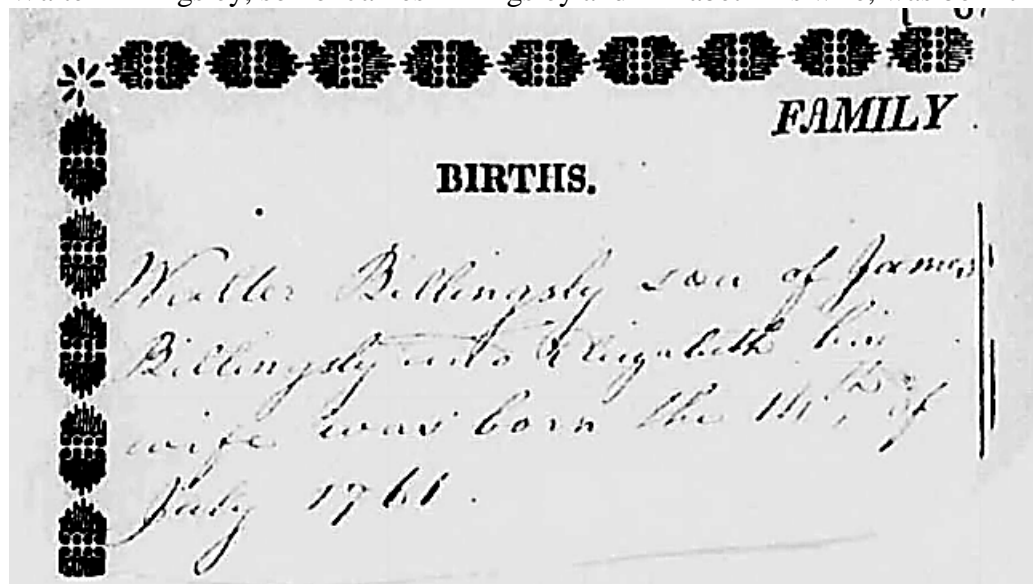 FAMILY
BIRTHS.
Walter Billingsly son of James
Billingsly and Elizabeth his
wife was born the 14th of
July 1761.